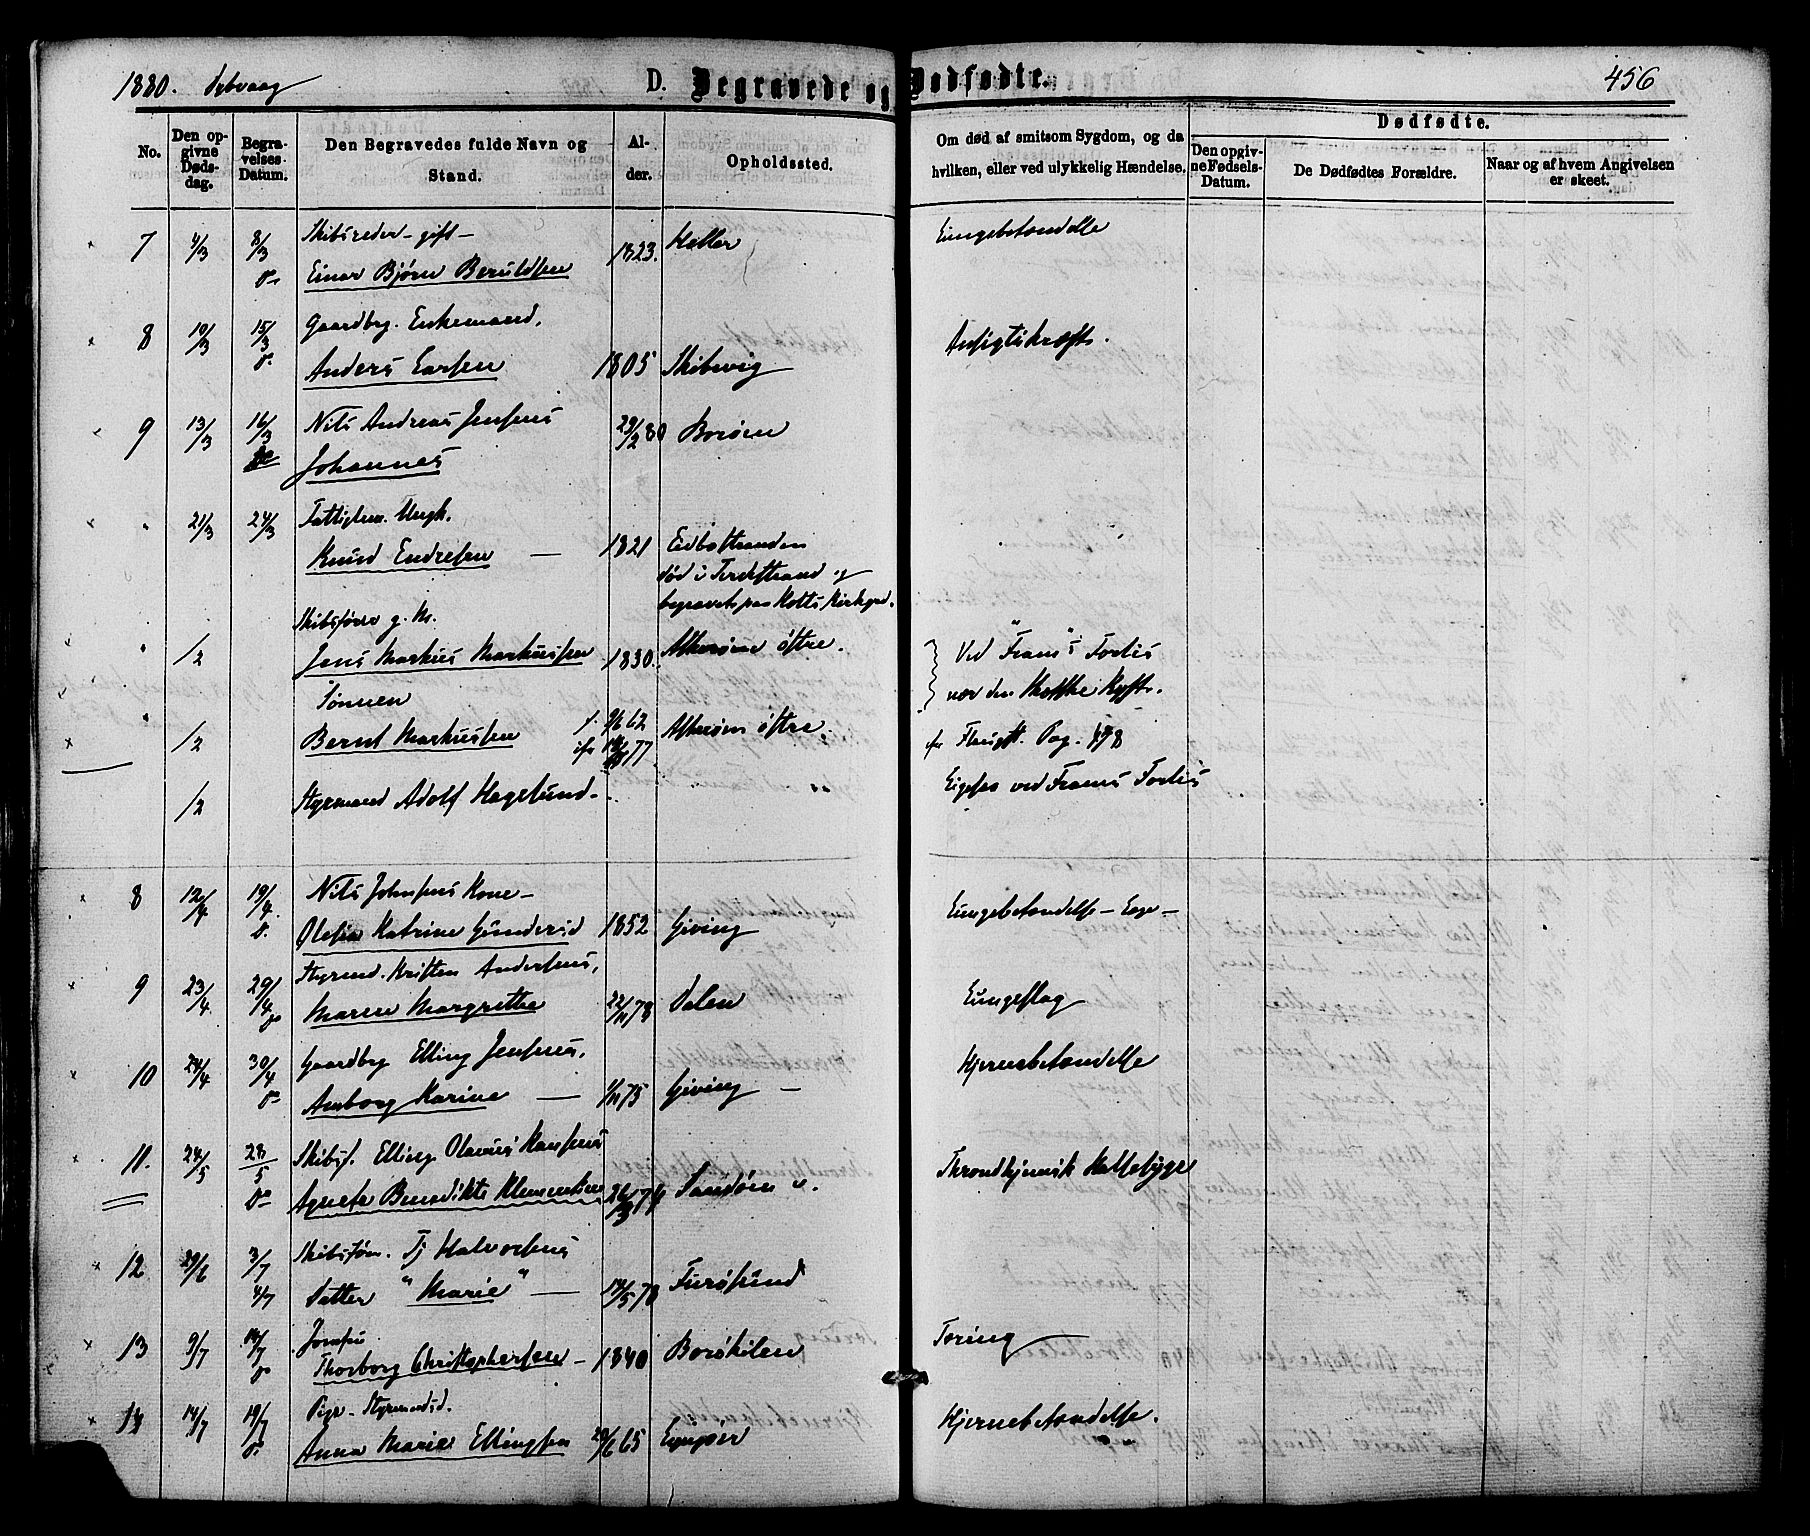 1880. D. Begravede og Dødfødte. 456
No.
Den opgivne Dødsdag.
Begravelses-Datum.
Den Begravedes fulde Navn og Stand.
Alder.
Opholdssted.
Om død af smitsom Sygdom, og da hvilken, eller ved ulykkelig Hændelse.
Dødfødte.
Den opgivne Fødsels-Datum.
De Dødfødtes Forældre.
Naar og af hvem Angivelsen er skeet.
Skibsreder - gift -
7 4/3 8/3 Einar Bjørn Berulfsen 1823. Lungebetændelse
Gaardbr. Enkemand,
8 10/3 15/3 Anders Larsen 1805 Skibvig Ansigtskræft.
9 13/3 16/3 Nils Andreas Jensens 29/2 80 Borøen
Johannes
21/3 24/3 Fattiglem. Ungk.
Knud Endresen — 1821 død i Tvedestrand og
begravet paa Holts Kirkegd.
Skibsfører g. M.
1/2 Jens Markus Markussen 1830. Alkerøen østre. Ved "Frams" Forlis
Sønnen nær den Kyst.
1/2 Bernt Markussen f. 9/6 62 Alkerøen østre.
1/2 Styrmand Adolf Hagelund ved Frams Forlis
8 12/4 19/4 Nils Johnsens Kone -
Olefia Katrine Gundersd 1852 Giving Lungebetændelse
9 23/4 29/4 Styrmd. Kristen Andersens,
Maren Margrethe 22/11 78 Dalen Lungeslag
10 24/4 30/4 Gaardbr Elling Jensens,
Anborg Karine — 1/11 75 Giving — Hjernebetændelse
11. 24/5 28/5 Skibsf. Elling Olavus Hansens
Agnete Benedikte Klementine Sandøen v. Throndhjemsk
12 29/6 3/7 Skibstøm. Tj Halvorsens
4/7 Datter "Marie" — 14/5 78 Furøsund
13 9/7 14/7 Jomfru
Thorborg Christophersen - 1840 Borøkilen Tæring
14 14/7 19/7 Pige - Styrmandsd.
Anna Marie Ellingsen 65 Hjernebetændelse.